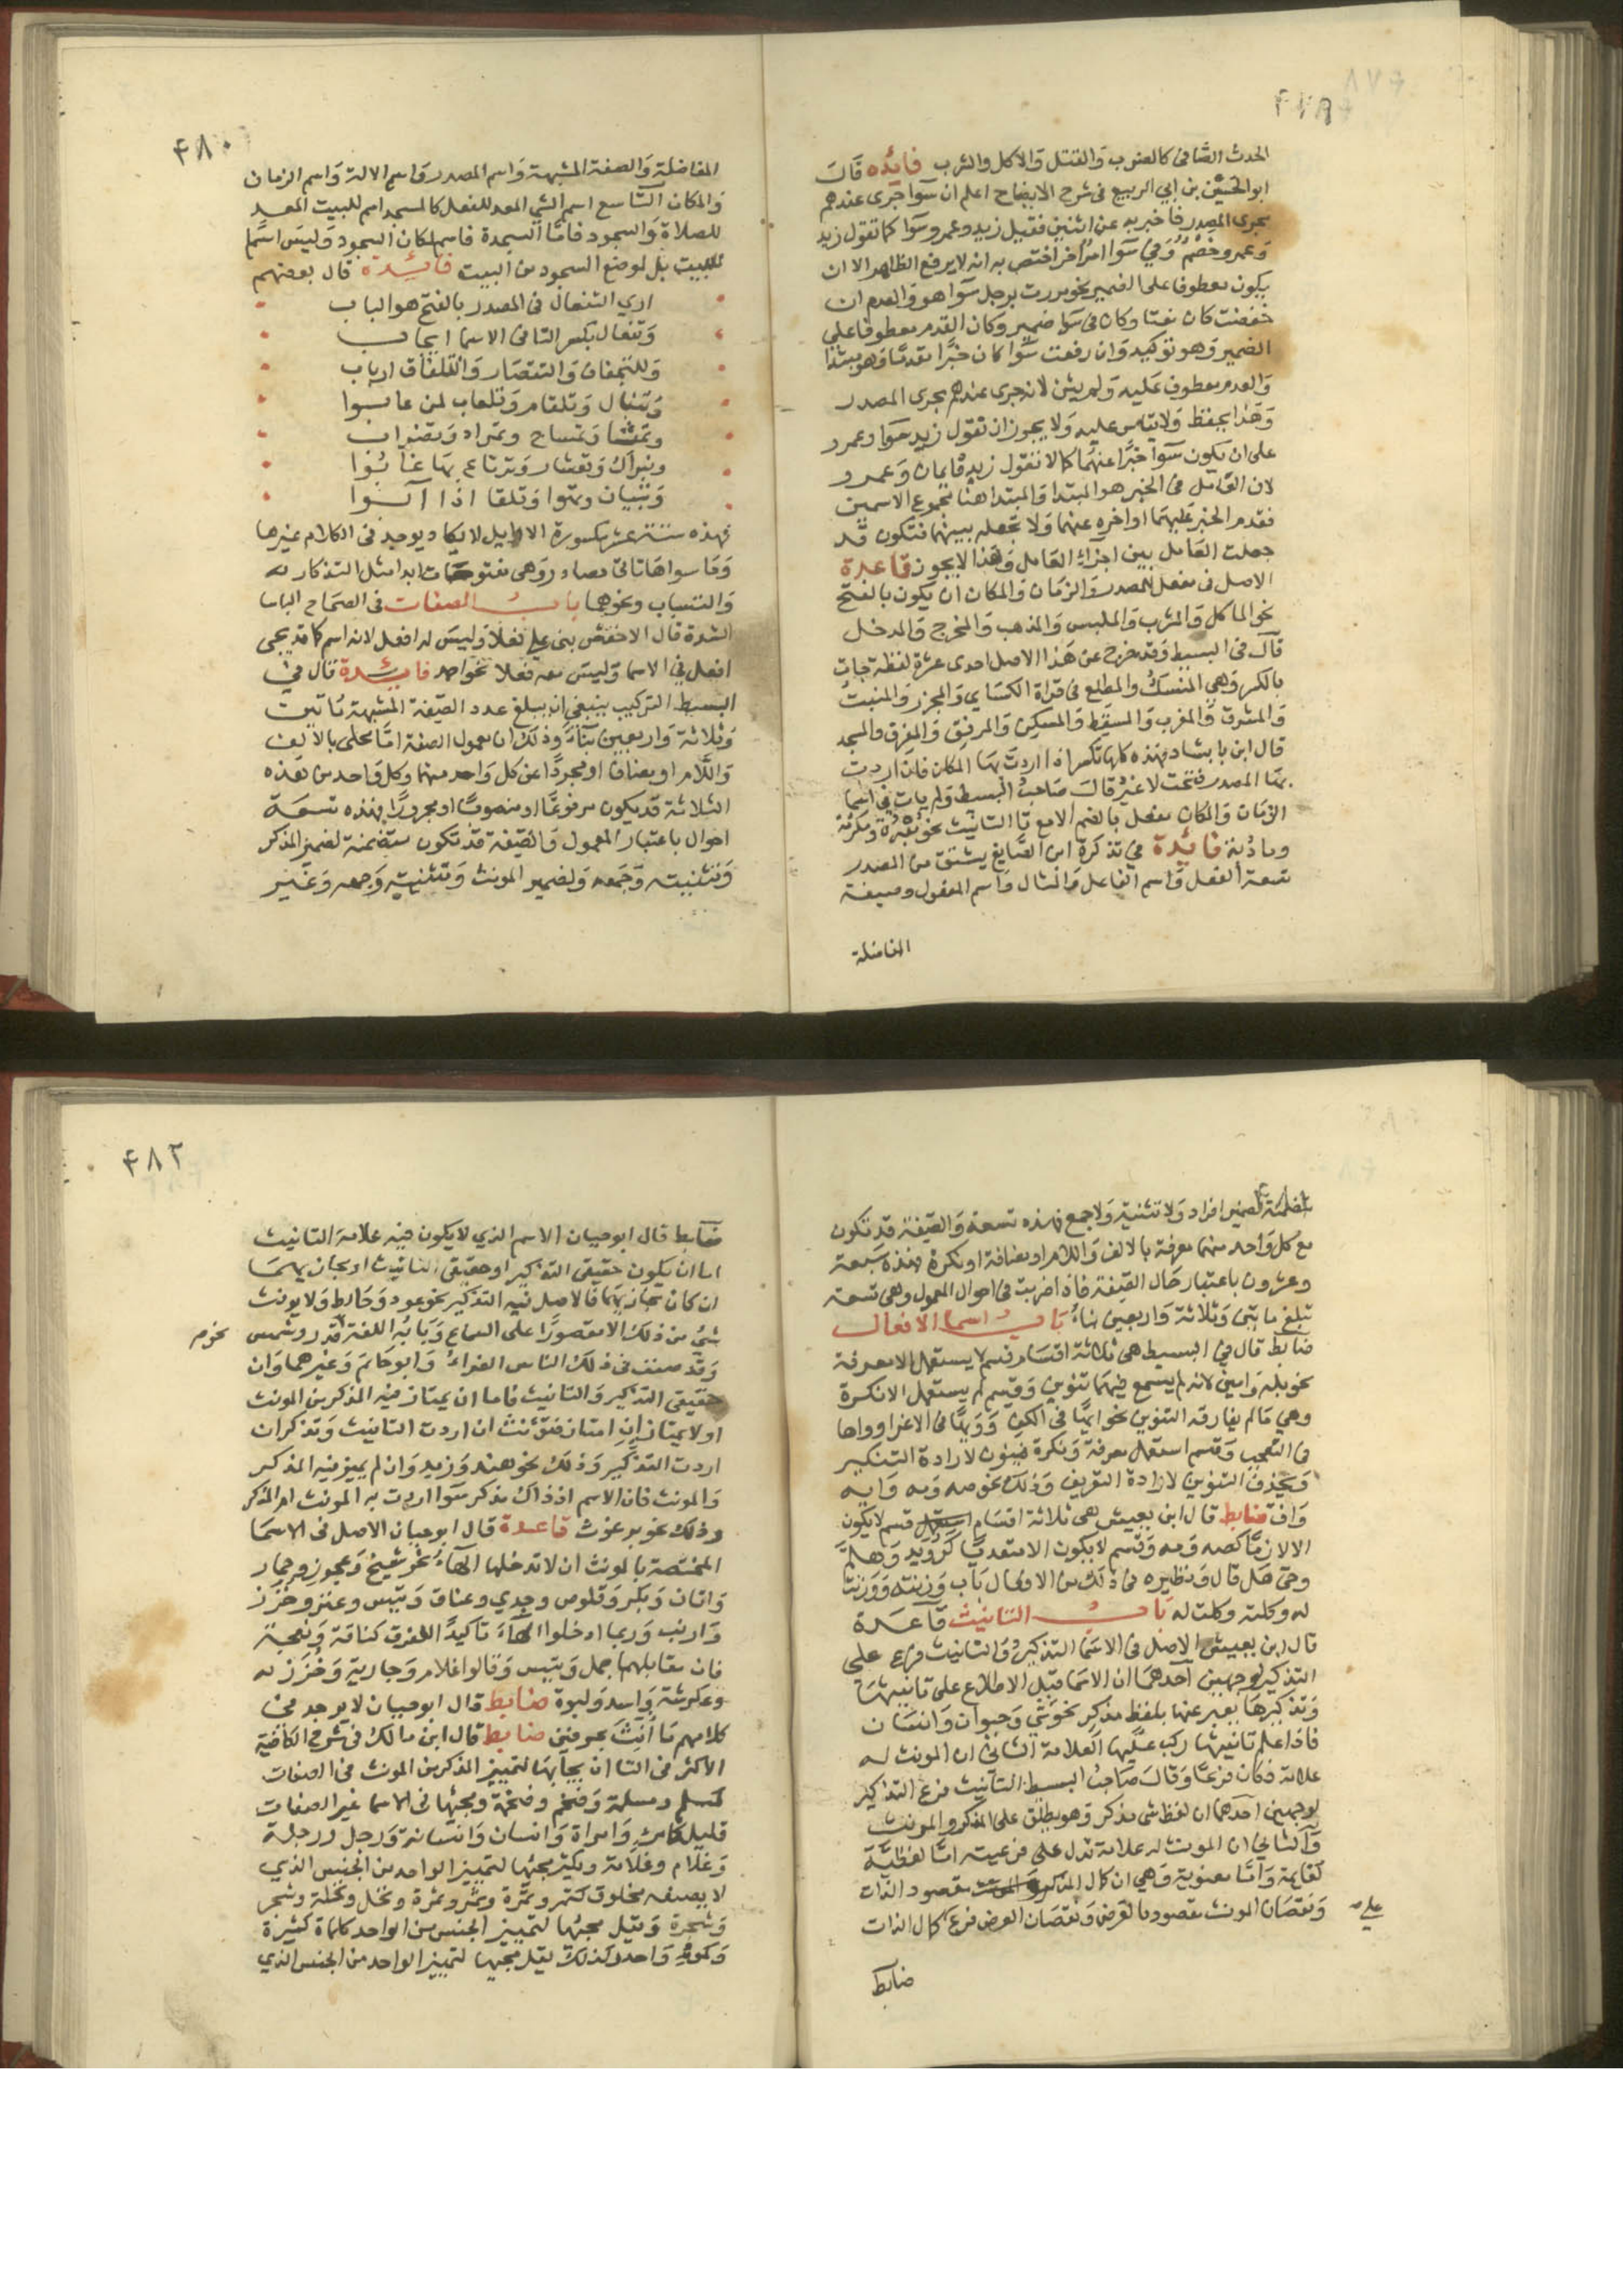 ٤٧٩
الحدث الصافى كالضرب والقتل والاكل والشرب فائده قال
ابو الحسين بن ابي الربيع فى شرح الايضاح اعلم ان سوا جرى عندهم
مجرى المصدر فاخبر به عن اثنين فقيل زيد وعمرو سوا كما تقول زيد
وعمرو خصم وفي سوا امر اخر اختص به انه لا يرفع الظاهر الا ان
يكون معطوفا على الضمير نحو مررت برجل سوا هو والعدم ان
خفضت كان نعتا وكان فى سوا ضمير وكان العدم معطوفا على
الضمير وهو توكيد وان رفعت سوا كان خبرا مقدما وهو مبتدا
والعدم معطوف عليه ولم يثن لانه جرى عندهم مجرى المصدر
وهذا يحفظ ولا يقاس عليه ولا يجوز ان تقول زيد سوا وعمرو
على ان يكون سوا خبرا عنهما كما لا تقول زيد قايمان وعمرو
لان العامل فى الخبر هو المبتدا والمبتدا هنا مجموع الاسمين
فقدم الخبر عليهما او اخره عنهما ولا تجعله بينهما فتكون قد
جعلت العامل بين اجزاء العامل وهذا لا يجوز قاعدة
الاصل فى مفعل للمصدر والزمان والمكان ان يكون بالفتح
نحو الماكل والمشرب والملبس والمذهب والمخرج والمدخل
قال فى البسيط وقد خرج عن هذا الاصل احدى عشرة لفظة جات
بالكسر وهي المنسك والمطلع فى قراة الكساي والمجزر والمنبت
والمشرق والمغرب والمسقط والمسكن والمرفق والمفرق والمسجد
قال ابن بابشاد فهذه كلها تكسر اذا اردت بها المكان فان اردت
بها المصدر فتحت لا غير قال صاحب البسيط ولم يات فى اسما
الزمان والمكان مفعل بالضم الا مع تا التانيث نحو مقبرة ومكرمة
ومادبة فائدة في تذكرة ابن الصايغ يشتق من المصدر
تسعة الفعل واسم الفاعل والمثال واسم المفعول وصيغة
المفاضلة
٤٨٠
المفاضلة والصفة المشبهة واسم المصدر واسم الالة واسم الزمان
والمكان التاسع اسم الشي المعد للفعل كالمسجد اسم للبيت المعد
للصلاة والسجود فاما السجدة فاسم لمكان السجود وليس اسما
للبيت بل لموضع السجود من البيت فائدة قال بعضهم
ارى التفعال فى المصدر بالفتح هو الباب
وتفعال بكسر التا فى الاسما ايجاب
وللتجفاف والتقصار والتلفاق ارباب
وتنبال وتلقام وتلعاب لمن عابوا
وتمشا وتمساح وتمراد وتضراب
وتبراك وتعشار وترباع بها غابوا
وتبيان وتهوا وتلقا اذا آبوا
فهذه ستة عشر مكسورة الاوايل لا يكاد يوجد فى الكلام غيرها
وما سواها تاتى مصادر وهي مفتوحات ابدا مثل التذكار
والتسياب ونحوهما باب الصفات فى الصحاح الباسا
الشدة قال الاخفش بنى على فعلا وليس له افعل لانه اسم كما قد يجى
افعل في الاسما وليس معه فعلا نحو احمد فائدة قال في
البسيط التركيب ينبغي ان يبلغ عدد الصفة المشبهة مايتين
وثلاثة واربعين بناء وذلك ان معمول الصفة اما محلى بالالف
واللام او مضافا او مجردا عن كل واحد منهما وكل واحد من هذه
الثلاثة قد يكون مرفوعا او منصوبا او مجرورا فهذه تسعة
احوال باعتبار المعمول والصفة قد تكون متضمنة لضمير المذكر
وتثنيته وجمعه ولضمير المونث وتثنيته وجمعه وغير
متضمنة لضمير افراد ولا تثنية ولا جمع فهذه تسعة والصفة قد تكون
مع كل واحد منهما معرفة بالالف واللام او مضافة او نكرة فهذه سبعة
وعشرون باعتبار حال الصفة فاذا ضربت فى احوال المعمول وهى تسعة
تبلغ مايتى وثلاثة واربعين بناء باب اسما الافعال
ضابط قال في البسيط هى ثلاثة اقسام قسم لا يستعمل الا معرفة
نحو بله وامين لانه لم يسمع فيهما تنوين وقسم لم يستعمل الا نكرة
وهي ما لم يفارقه التنوين نحو ايها في الكف وويها فى الاغرا وواها
فى التعجب وقسم استعمل معرفة ونكرة فينون لارادة التنكير
ويحذف التنوين لارادة التعريف وذلك نحو صه ومه وايه
واف ضابط قال ابن يعيش هى ثلاثة اقسام قسم لا يكون
الا لازما كصه ومه وقسم لا يكون الا متعديا كرويد وهلم
وحى هل قال ونظيره فى ذلك من الافعال باب وزنته ووزنت
له وكلته وكلت له باب التانيث قاعدة
قال ابن يعيش الاصل فى الاسما التذكير والتانيث فرع على
التذكير لوجهين احدهما ان الاسما قبل الاطلاع على تانيثها
وتذكيرها يعبر عنها بلفظ مذكر نحو شي وحيوان وانسان
فاذا علم تانيثها ركب عليها العلامة الثانى ان المونث له
علامة فكان فرعا وقال صاحب البسيط التانيث فرع التذكير
لوجهين احدهما ان لفظ شى مذكر وهو يطلق على المذكر والمونث
والثاني ان المونث له علامة تدل على فرعيته اما لفظية
كقايمة واما معنوية وهي ان كمال المذكر مقصود الذات
ونقصان المونث مقصود بالعرض ونقصان العرض فرع كمال الذات
على
ضابط
٤٨٢
ضابط قال ابو حيان الاسم الذي لا يكون فيه علامة التانيث
اما ان يكون حقيقى التذكير او حقيقى التانيث او مجازيهما
ان كان مجازيهما فالاصل فيه التذكير نحو عود وحايط ولا يونث
شي من ذلك الا مقصورا على السماع وبابه اللغة قدر وشمس
نحو
وقد صنف فى ذلك الناس الفراء وابو حاتم وغيرهما وان
حقيقى التذكير والتانيث فاما ان يمتاز فيه المذكر من المونث
او لا يمتاز ان امتاز فتونث ان اردت التانيث وتذكر ان
اردت التذكير وذلك نحو هند وزيد وان لم يميز فيه المذكر
والمونث فان الاسم اذ ذاك مذكر سوا اردت به المونث ام المذكر
وذلك نحو برغوث قاعدة قال ابو حيان الاصل فى الاسما
المختصة بالمونث ان لا تدخلها الهاء نحو شيخ وعجوز وحمار
واتان وبكر وقلوص وجدي وعناق وتيس وعنز وخزز
وارنب وربما ادخلوا الهاء تاكيدا للفرق كناقة ونعجة
فان مقابلهما جمل وتيس وقالوا غلام وجارية وخزز
وعكرشة واسد ولبوة ضابط قال ابو حيان لا يوجد فى
كلامهم ما انث بحرفين ضابط قال ابن مالك فى شرح الكافية
الاكثر فى التا ان يجا بها لتمييز المذكر من المونث فى الصفات
كمسلم ومسلمة وضخم وضخمة ومجيها فى الاسما غير الصفات
قليل كامرى وامراة وانسان وانسانة ورجل ورجلة
وغلام وغلامة ويكثر مجيها لتمييز الواحد من الجنس الذي
لا يصنعه مخلوق كتمر وتمرة وثمر وثمرة ونخل ونخلة وشجر
وشجرة ويقل مجيها لتمييز الجنس من الواحد كماة كثيرة
وكمو واحد وكذلك يقل مجيها لتمييز الواحد من الجنس الذي